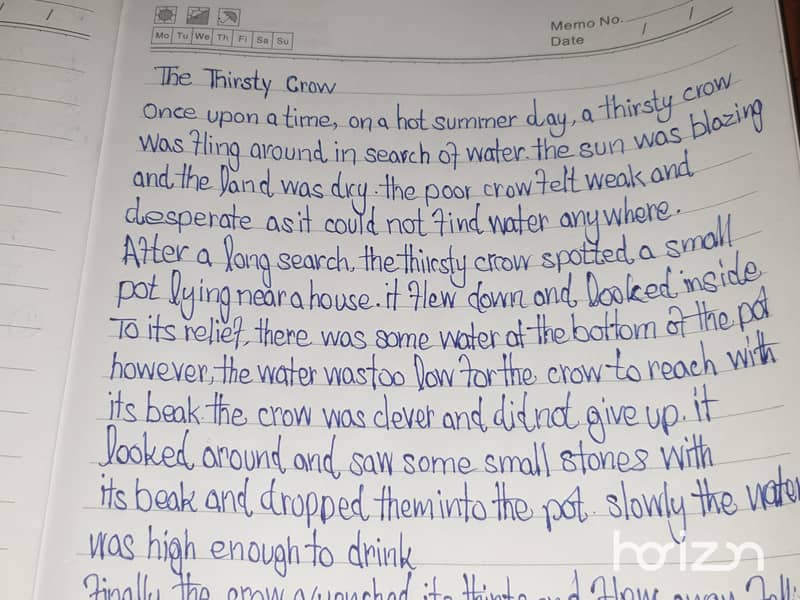 Memo No.
Date / /
Mo Tu We Th Fi Sa Su
The Thirsty Crow
Once upon a time, on a hot summer day, a thirsty crow
was fling around in search of water. the sun was blazing
and the land was dry. the poor crow felt weak and
desperate as it could not find water anywhere.
After a long search, the thircsty crow spotted a small
pot lying near a house. it flew down and looked inside
To its relief, there was some water at the bottom of the pot
however, the water was too low for the crow to reach with
its beak the crow was clever and did not give up. it
looked around and saw some small stones with
its beak and dropped them into the pot. slowly the water
was high enough to drink
Finally the crow it's and flow away
horizon